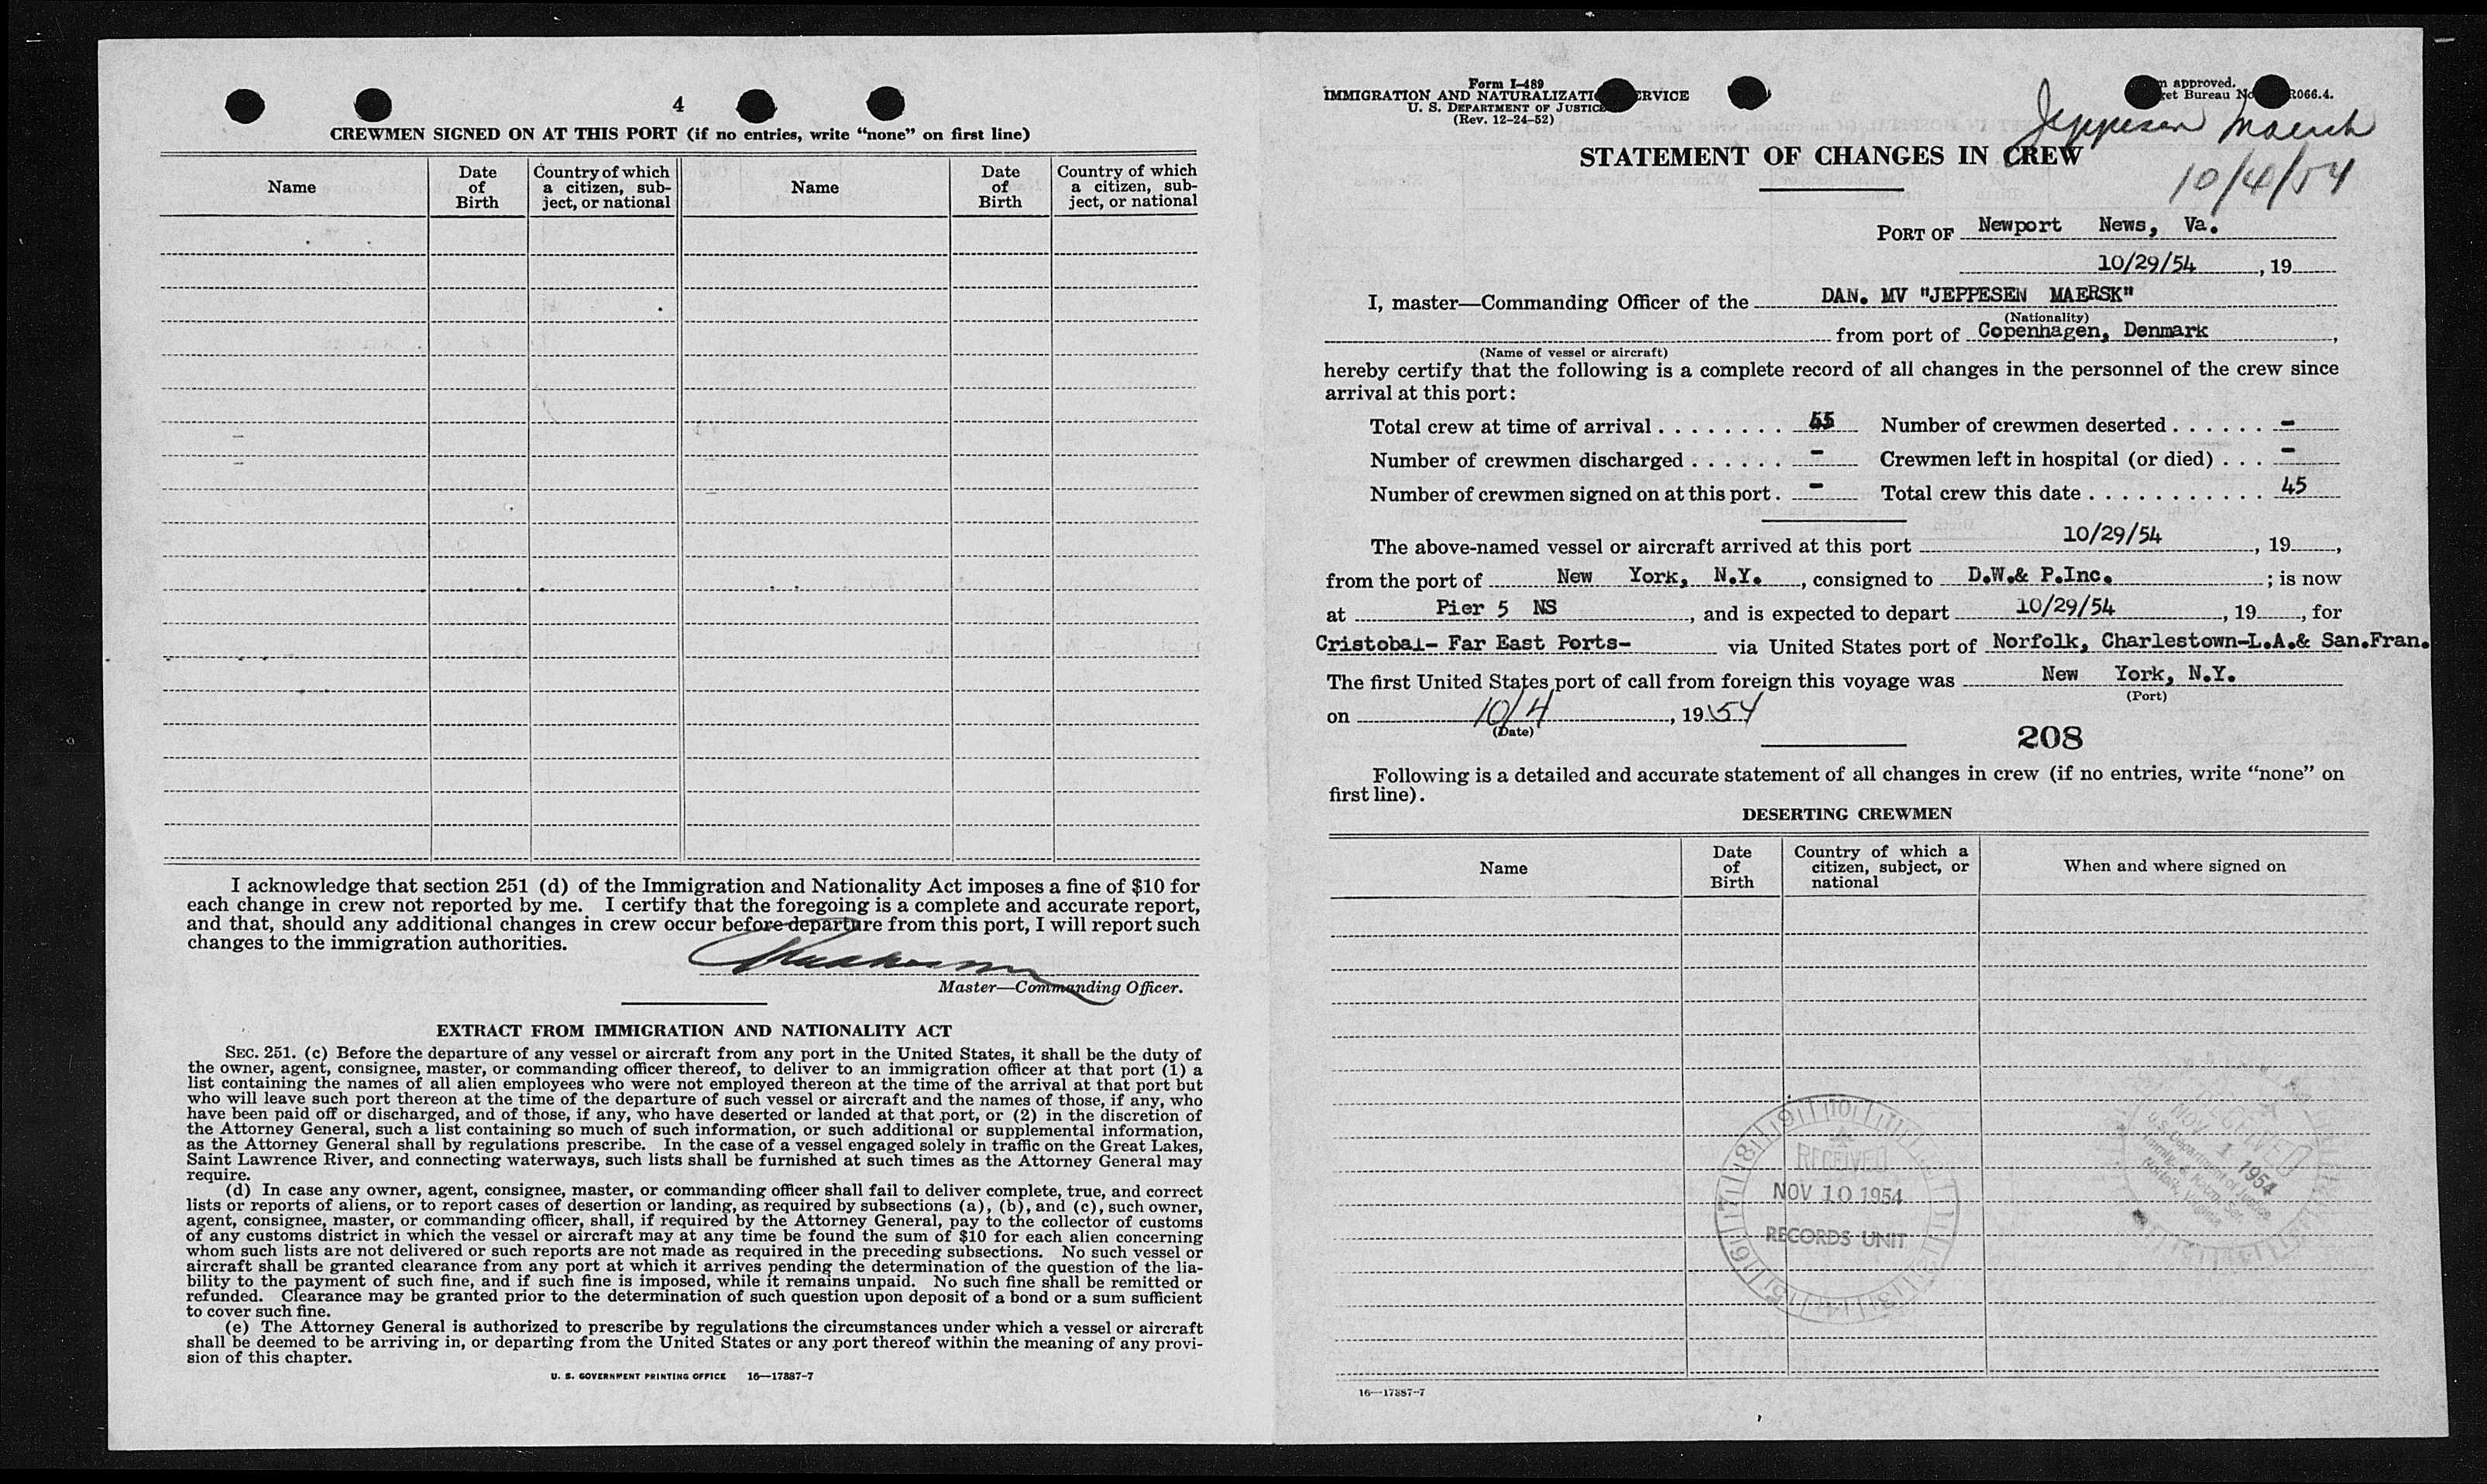 4
CREWMEN SIGNED ON AT THIS PORT (if no entries, write “none” on first line)
Name
Date of Birth
Country of which a citizen, sub-ject, or national
Name
Date of Birth
Country of which a citizen, sub-ject, or national
I acknowledge that section 251 (d) of the Immigration and Nationality Act imposes a fine of $10 for
each change in crew not reported by me. I certify that the foregoing is a complete and accurate report,
and that, should any additional changes in crew occur before departure from this port, I will report such
changes to the immigration authorities.
Master—Commanding Officer.
EXTRACT FROM IMMIGRATION AND NATIONALITY ACT
SEC. 251. (c) Before the departure of any vessel or aircraft from any port in the United States, it shall be the duty of
the owner, agent, consignee, master, or commanding officer thereof, to deliver to an immigration officer at that port (1) a
list containing the names of all alien employees who were not employed thereon at the time of the arrival at that port but
who will leave such port thereon at the time of the departure of such vessel or aircraft and the names of those, if any, who
have been paid off or discharged, and of those, if any, who have deserted or landed at that port, or (2) in the discretion of
the Attorney General, such a list containing so much of such information, or such additional or supplemental information,
as the Attorney General shall by regulations prescribe. In the case of a vessel engaged solely in traffic on the Great Lakes,
Saint Lawrence River, and connecting waterways, such lists shall be furnished at such times as the Attorney General may
require.
(d) In case any owner, agent, consignee, master, or commanding officer shall fail to deliver complete, true, and correct
lists or reports of aliens, or to report cases of desertion or landing, as required by subsections (a), (b), and (c), such owner,
agent, consignee, master, or commanding officer, shall, if required by the Attorney General, pay to the collector of customs
of any customs district in which the vessel or aircraft may at any time be found the sum of $10 for each alien concerning
whom such lists are not delivered or such reports are not made as required in the preceding subsections. No such vessel or
aircraft shall be granted clearance from any port at which it arrives pending the determination of the question of the lia-
bility to the payment of such fine, and if such fine is imposed, while it remains unpaid. No such fine shall be remitted or
refunded. Clearance may be granted prior to the determination of such question upon deposit of a bond or a sum sufficient
to cover such fine.
(e) The Attorney General is authorized to prescribe by regulations the circumstances under which a vessel or aircraft
shall be deemed to be arriving in, or departing from the United States or any port thereof within the meaning of any provi-
sion of this chapter.
U. S. GOVERNMENT PRINTING OFFICE 16—17887-7
Form I-489
IMMIGRATION AND NATURALIZATI RVICE
U. S. DEPARTMENT OF JUSTICE
(Rev. 12-24-52)
approved.
et Bureau No. R066.4.
Jeppesen Maersk
10/4/54
STATEMENT OF CHANGES IN CREW
PORT OF Newport News, Va.
10/29/54, 19
I, master—Commanding Officer of the DAN. MV "JEPPESEN MAERSK"
(Nationality)
from port of Copenhagen, Denmark,
(Name of vessel or aircraft)
hereby certify that the following is a complete record of all changes in the personnel of the crew since
arrival at this port:
Total crew at time of arrival . . . . . . . . Number of crewmen deserted . . . . . . -
Number of crewmen discharged . . . . . . - Crewmen left in hospital (or died) . . . -
Number of crewmen signed on at this port . - Total crew this date . . . . . . . . . . . 45
The above-named vessel or aircraft arrived at this port 10/29/54, 19,
from the port of New York, N.Y., consigned to D.W.& P.Inc. ; is now
at Pier 5 NS, and is expected to depart 10/29/54, 19, for
Cristobal- Far East Ports- via United States port of Norfolk, Charlestown-L.A.& San.Fran.
The first United States port of call from foreign this voyage was New York, N.Y.
(Port)
on 10/4, 1954
(Date)
208
Following is a detailed and accurate statement of all changes in crew (if no entries, write “none” on
first line).
DESERTING CREWMEN
Name
Date of Birth
Country of which a citizen, subject, or national
When and where signed on
RECEIVED
NOV 10 1954
RECORDS UNIT
RECEIVED
NOV 1 1954
U.S. Department of Justice
Immig. & Natzn. Ser.
Norfolk, Virginia
16—17887-7